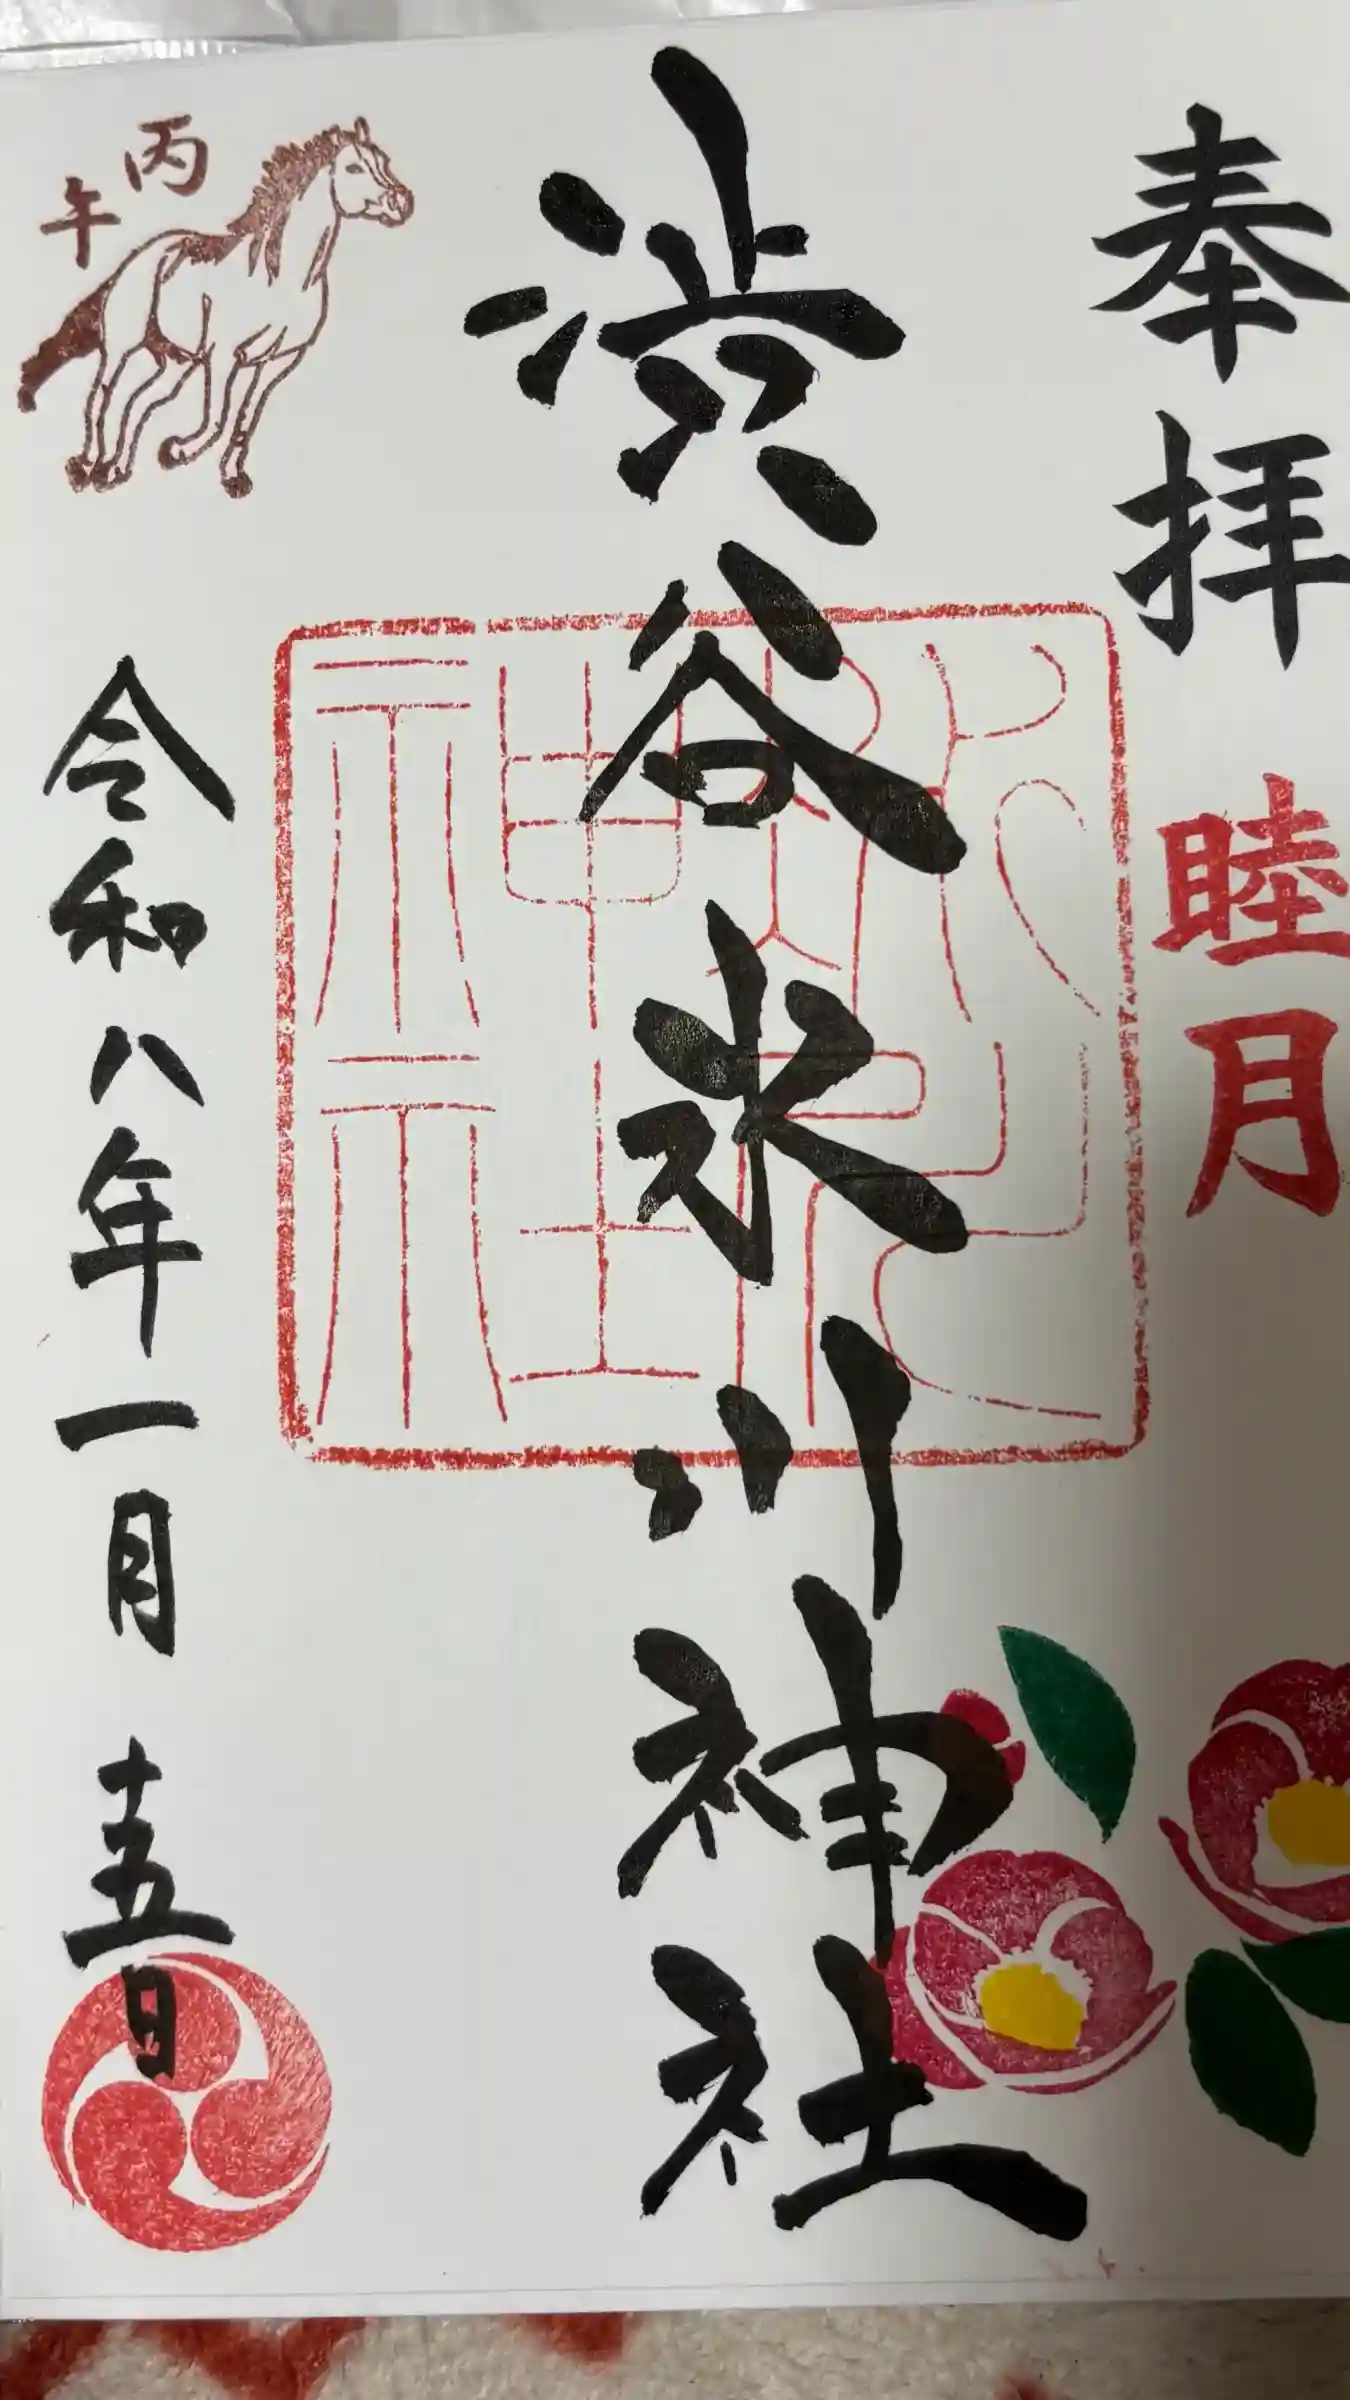 奉拝
睦月
渋谷氷川神社
氷川神社
丙午
令和八年一月十五日